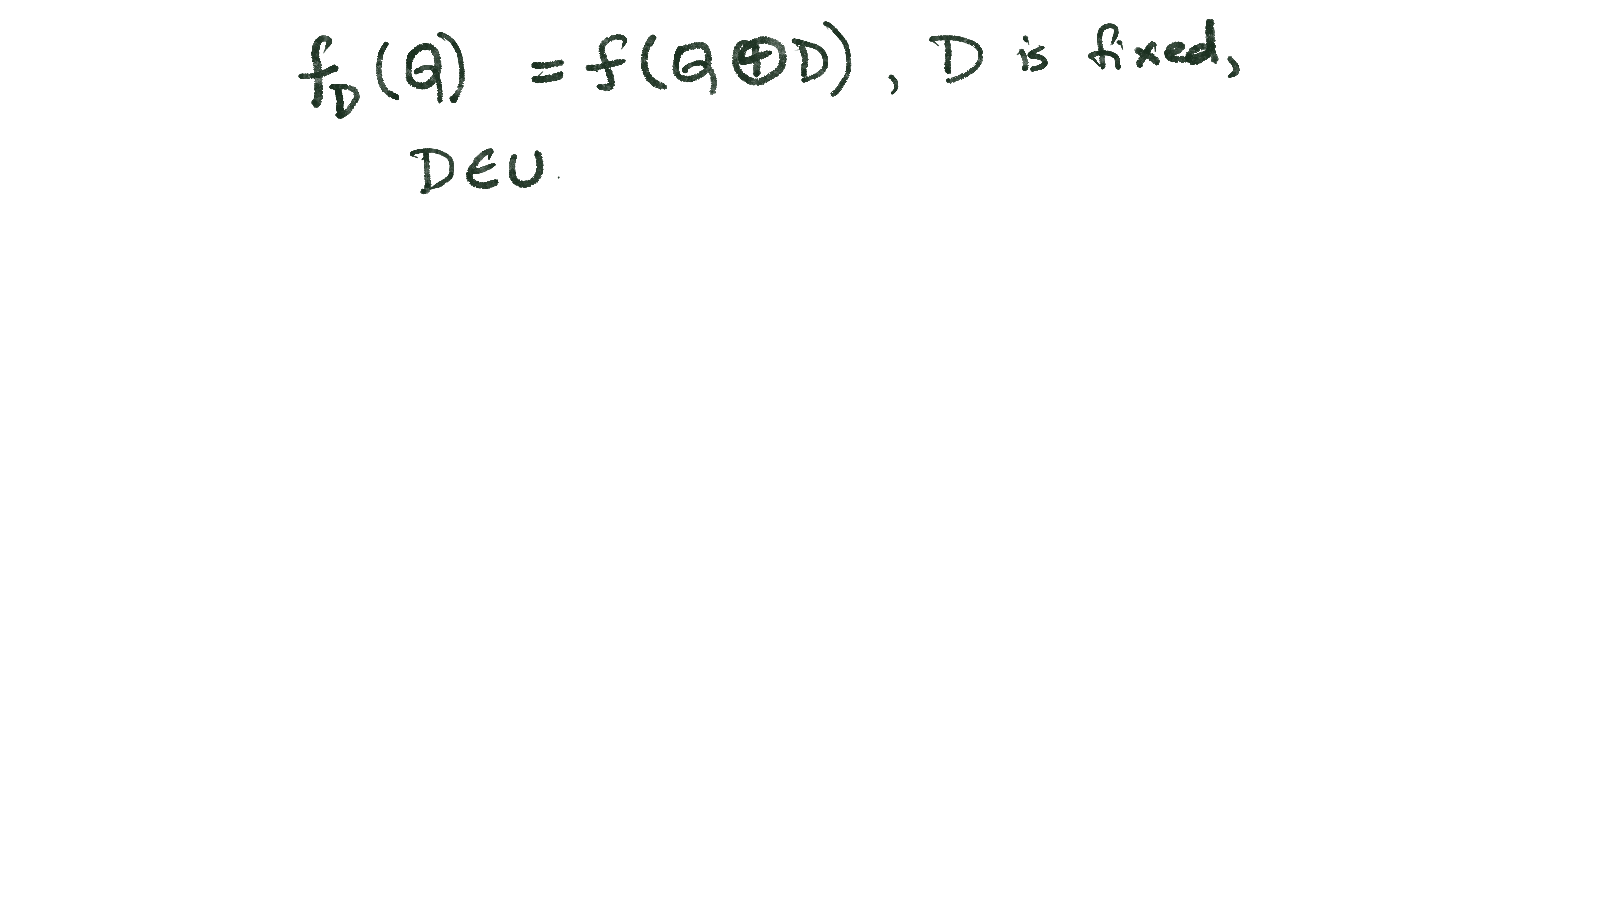 f_D(Q) = f(Q ⊕ D), D is fixed,
D ∈ U